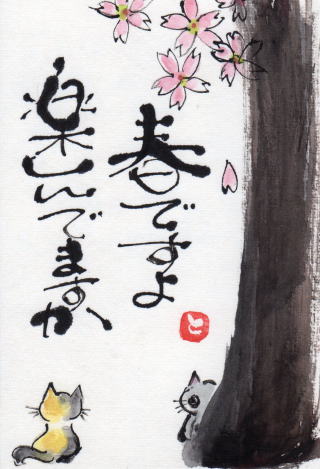 春ですよ
楽しんでますか
と